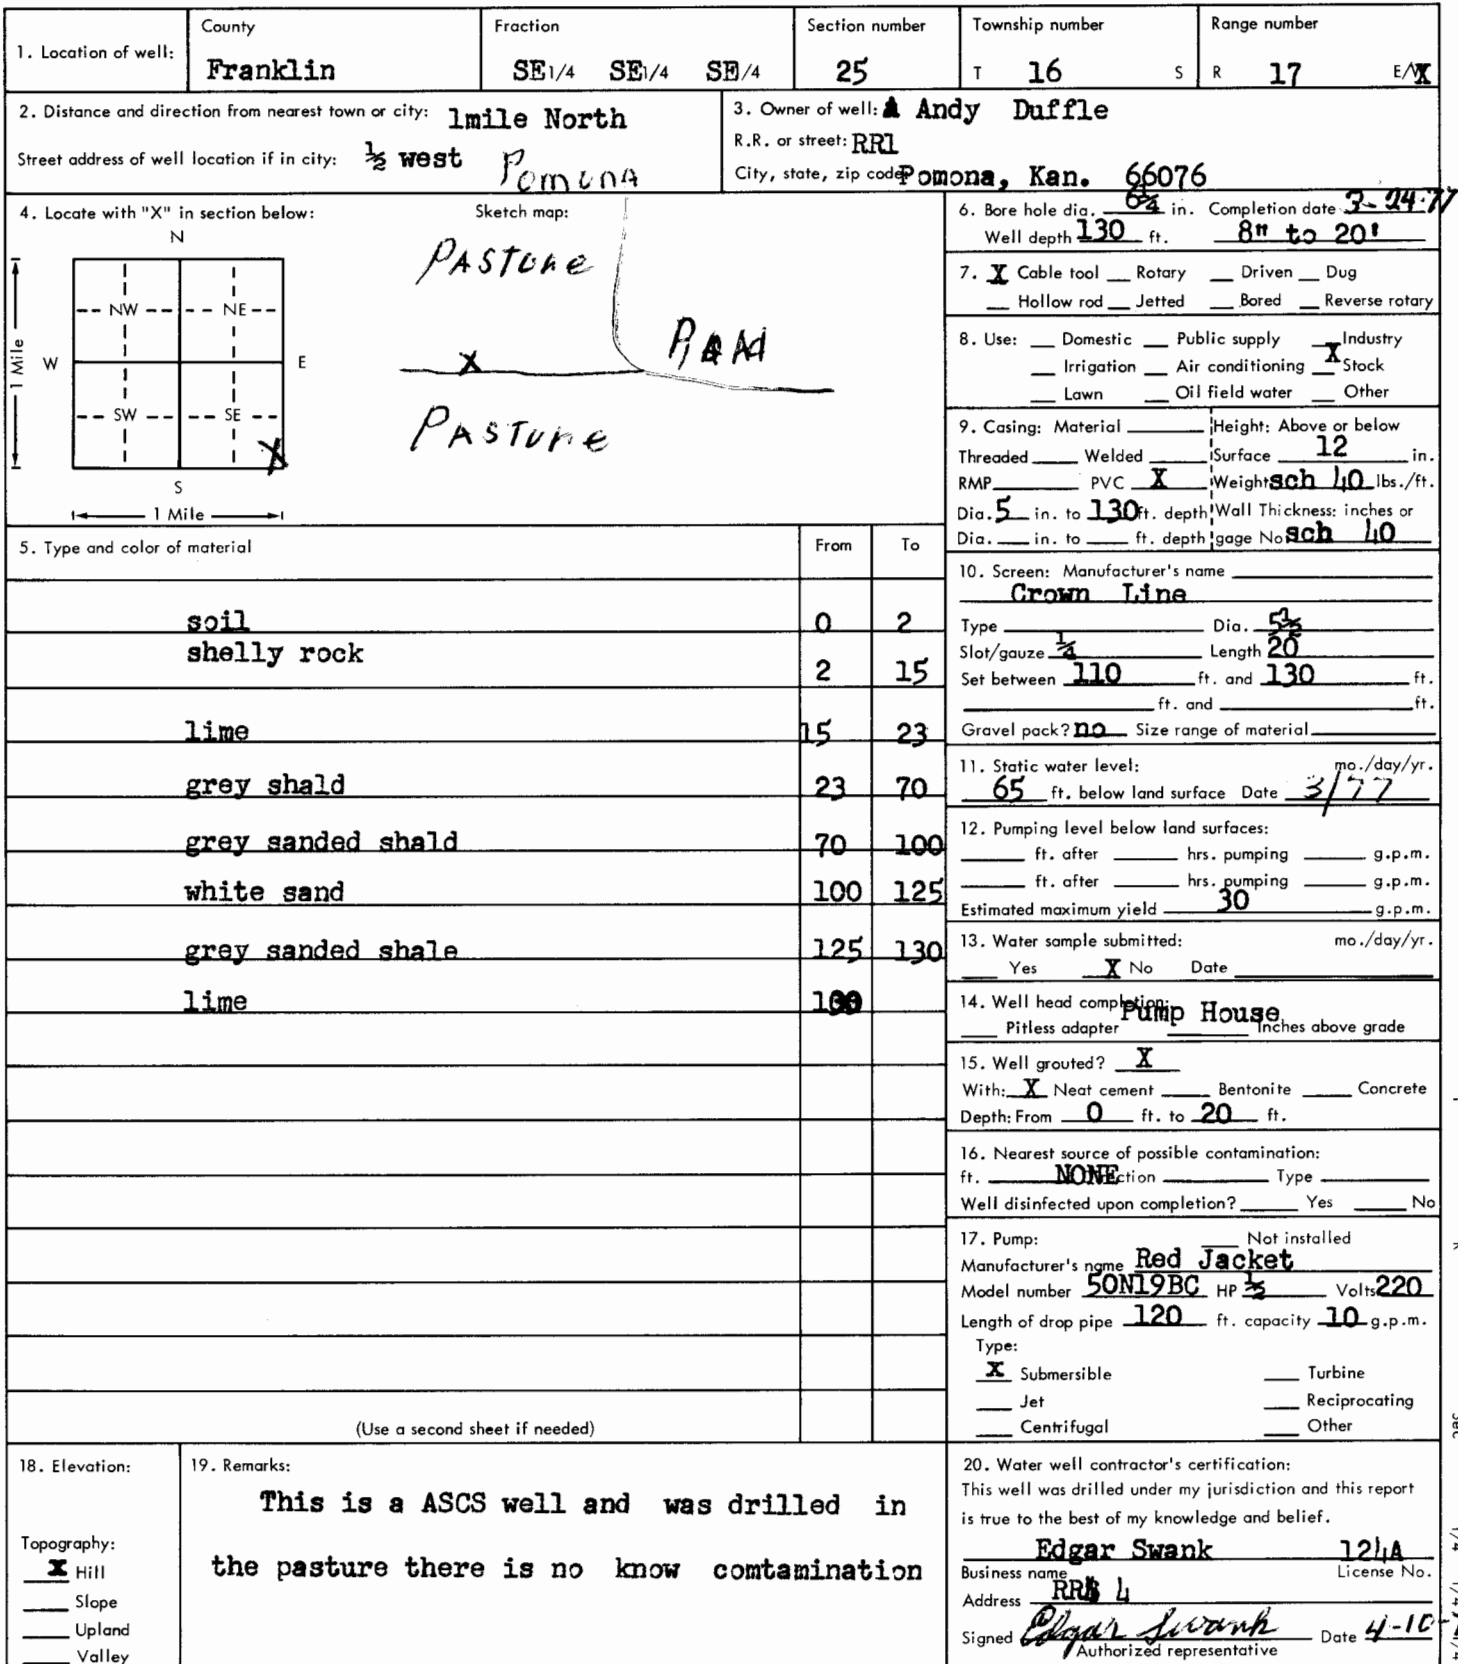 1. Location of well:
County
Franklin
Fraction
SE1/4 SE1/4 SE/4
Section number
25
Township number
T 16 S
Range number
R 17 E/
2. Distance and direction from nearest town or city: 1mile North
Street address of well location if in city: ½ west Pomona
3. Owner of well: Andy Duffle
R.R. or street: RR1
City, state, zip code Pomona, Kan. 66076
4. Locate with "X" in section below:
N
NW NE
W E
SW SE
X
S
1 Mile
1 Mile
Sketch map:
PASTURE
ROAD
X
PASTURE
5. Type and color of material From To
soil 0 2
shelly rock 2 15
lime 15 23
grey shald 23 70
grey sanded shald 70 100
white sand 100 125
grey sanded shale 125 130
lime
(Use a second sheet if needed)
6. Bore hole dia. 6¼ in. Completion date 3-24-77
Well depth 130 ft. 8" to 20'
7. X Cable tool Rotary Driven Dug
Hollow rod Jetted Bored Reverse rotary
8. Use: Domestic Public supply Industry
Irrigation Air conditioning X Stock
Lawn Oil field water Other
9. Casing: Material Height: Above or below
Threaded Welded Surface 12 in.
RMP PVC X Weight sch 40 lbs./ft.
Dia. 5 in. to 130 ft. depth Wall Thickness: inches or
Dia. in. to ft. depth gage No sch 40
10. Screen: Manufacturer's name
Crown Line
Type Dia. 5½
Slot/gauze ¼ Length 20
Set between 110 ft. and 130 ft.
ft. and ft.
Gravel pack? no Size range of material
11. Static water level: mo./day/yr.
65 ft. below land surface Date 3/77
12. Pumping level below land surfaces:
ft. after hrs. pumping g.p.m.
ft. after hrs. pumping g.p.m.
Estimated maximum yield 30 g.p.m.
13. Water sample submitted: mo./day/yr.
Yes X No Date
14. Well head completion: Pump House
Pitless adapter Inches above grade
15. Well grouted? X
With: X Neat cement Bentonite Concrete
Depth: From 0 ft. to 20 ft.
16. Nearest source of possible contamination:
ft. NONE ction Type
Well disinfected upon completion? Yes No
17. Pump: Not installed
Manufacturer's name Red Jacket
Model number 50N19BC HP ½ Volts 220
Length of drop pipe 120 ft. capacity 10 g.p.m.
Type:
X Submersible Turbine
Jet Reciprocating
Centrifugal Other
18. Elevation:
Topography:
X Hill
Slope
Upland
Valley
19. Remarks:
This is a ASCS well and was drilled in
the pasture there is no know comtamination
20. Water well contractor's certification:
This well was drilled under my jurisdiction and this report
is true to the best of my knowledge and belief.
Edgar Swank 124A
Business name License No.
Address RR 4
Signed Edgar Swank Date 4-10-
Authorized representative